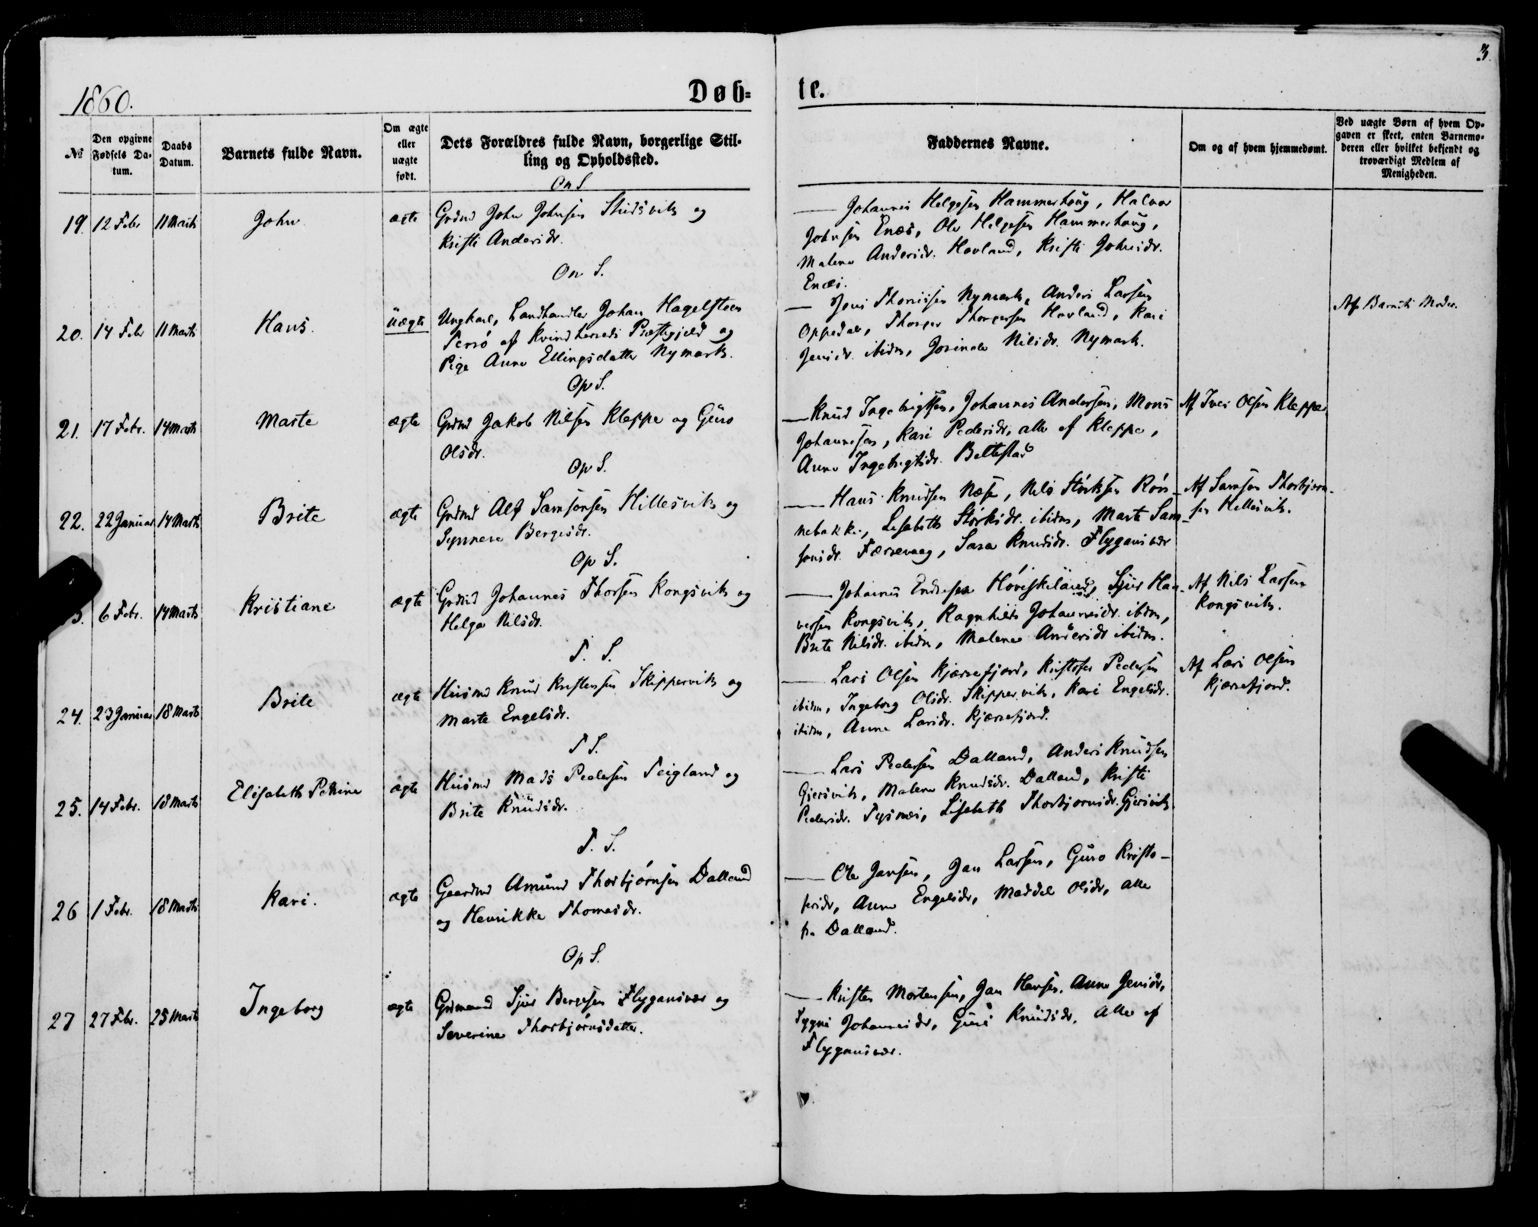 3
1860.
Døb=
te.
№
Den opgivne Fødsels Datum.
Daabs Datum.
Barnets fulde Navn.
Om ægte eller uægte født.
Dets Forældres fulde Navn, borgerlige Stilling og Opholdssted.
Faddernes Navne.
Om og af hvem hjemmedøbt.
Ved uægte Børn af hvem Opgaven er skeet, enten Barnemoderen eller hvilket bekjendt og troværdigt Medlem af Menigheden.
On S
19. 12 Febr 11 Marts John ægte Grdmd John Johnsen og
Kristi Andersdr.
Johannes Helgesen Hammerhoug, Halvor
Johnsen Enæs, Ole Helgesen Hammerhoug,
Malene Andersdr. Hovland, Kristi Johnsdr.
Enæs.
On S.
20. 14 Febr 11 Marts Hans. üægte Ungkarl, Landhandler Johan Hagelsteen
af Kvindherreds Præstegjeld og
Pige Anne Ellingsdatter Nymark.
Jens Nymark, Anders Larsen
Oppedal, Thorger Thorgersen Hovland, Kari
Jensdr. ibidm, Nilsdr. Nymark.
Af Barnets Moder.
Op S.
21. 17 Febr. 14 Marts Marte ægte Grdmd Jakob Nilsen Kleppe og Güro
Olsdr.
Knud Ingebrigtsen, Johannes Andersen, Mons
Johannesen, Kari Pedersdr, alle af Kleppe,
Anne Ingebrigtsdr. Beltestad
Af Iver Olsen Kleppe.
Op S.
22. 22 Januar 14 Marts Brite ægte Grdmd Alf Samsonsen Hillesvik og
Synneve Bergesdr.
Hans Knudsen Næse, Nils Störksen Rön-
nebakke, Lisabeth Störksdr. ibidm, Marte Sam-
sonsdr. Færevaag, Sara Knudsdr. Flygansvær
Af Samson Thorbjørn-
sen Hillesvik.
Op S.
6 Febr. 14 Marts Kristiane ægte Grdmd Johannes Thorsen Kongsvik og
Helga Nilsdr.
Johannes Endresen Sjur Hal-
vorsen Kongsvik, Ragnhild Johannesdr. ibidm,
Brite Nilsdr. ibidm, Malene Andersdr ibidm.
Af Nils Larsen
Kongsvik.
T. S.
24. 23 Januar 18 Marts Brite ægte Husmd Knud Skippervik og
Marte Engelsdr.
Lars Olsen Kjærrefjord, Kristofer Pedersen
ibidm, Ingeborg Olsdr. Skippervik, Kari Engelsdr.
ibidm, Anne Larsdr. Kjærrefjord.
Af Lars Olsen
Kjærrefjord.
T S.
25. 14 Febr. 18 Marts Elisabeth Petrine ægte Husmd Mads Pedersen Teigland og
Brite Knüdsdr.
Lars Pedersen Dalland, Anders Knudsen
Gjersvik, Malene Knudsdr. Dalland, Kristi
Pedersdr. Tysnæs, Lisabeth Thorbjørnsdr. Gjersvik
T. S.
26 1 Febr. 18 Marts Kari. ægte Gaardmd Amund Thorbjørnsen Dalland
og Henrikke Thomasdr.
Ole Jansen, Jan Larsen, Guro Kristo-
fersdr, Anne Engelsdr, Maddel Olsdr, alle
fra Dalland.
Op S.
27 27 Febr. 25 Marts Ingeborg ægte Grdmand Sjur Bergesen Flygansvær og
Severine Thorbjørnsdatter.
Kristen Mortensen, Jan Hansen, Anne Jensdr,
Johannesdr, Knüdsdr. Alle af
Flygansvær.